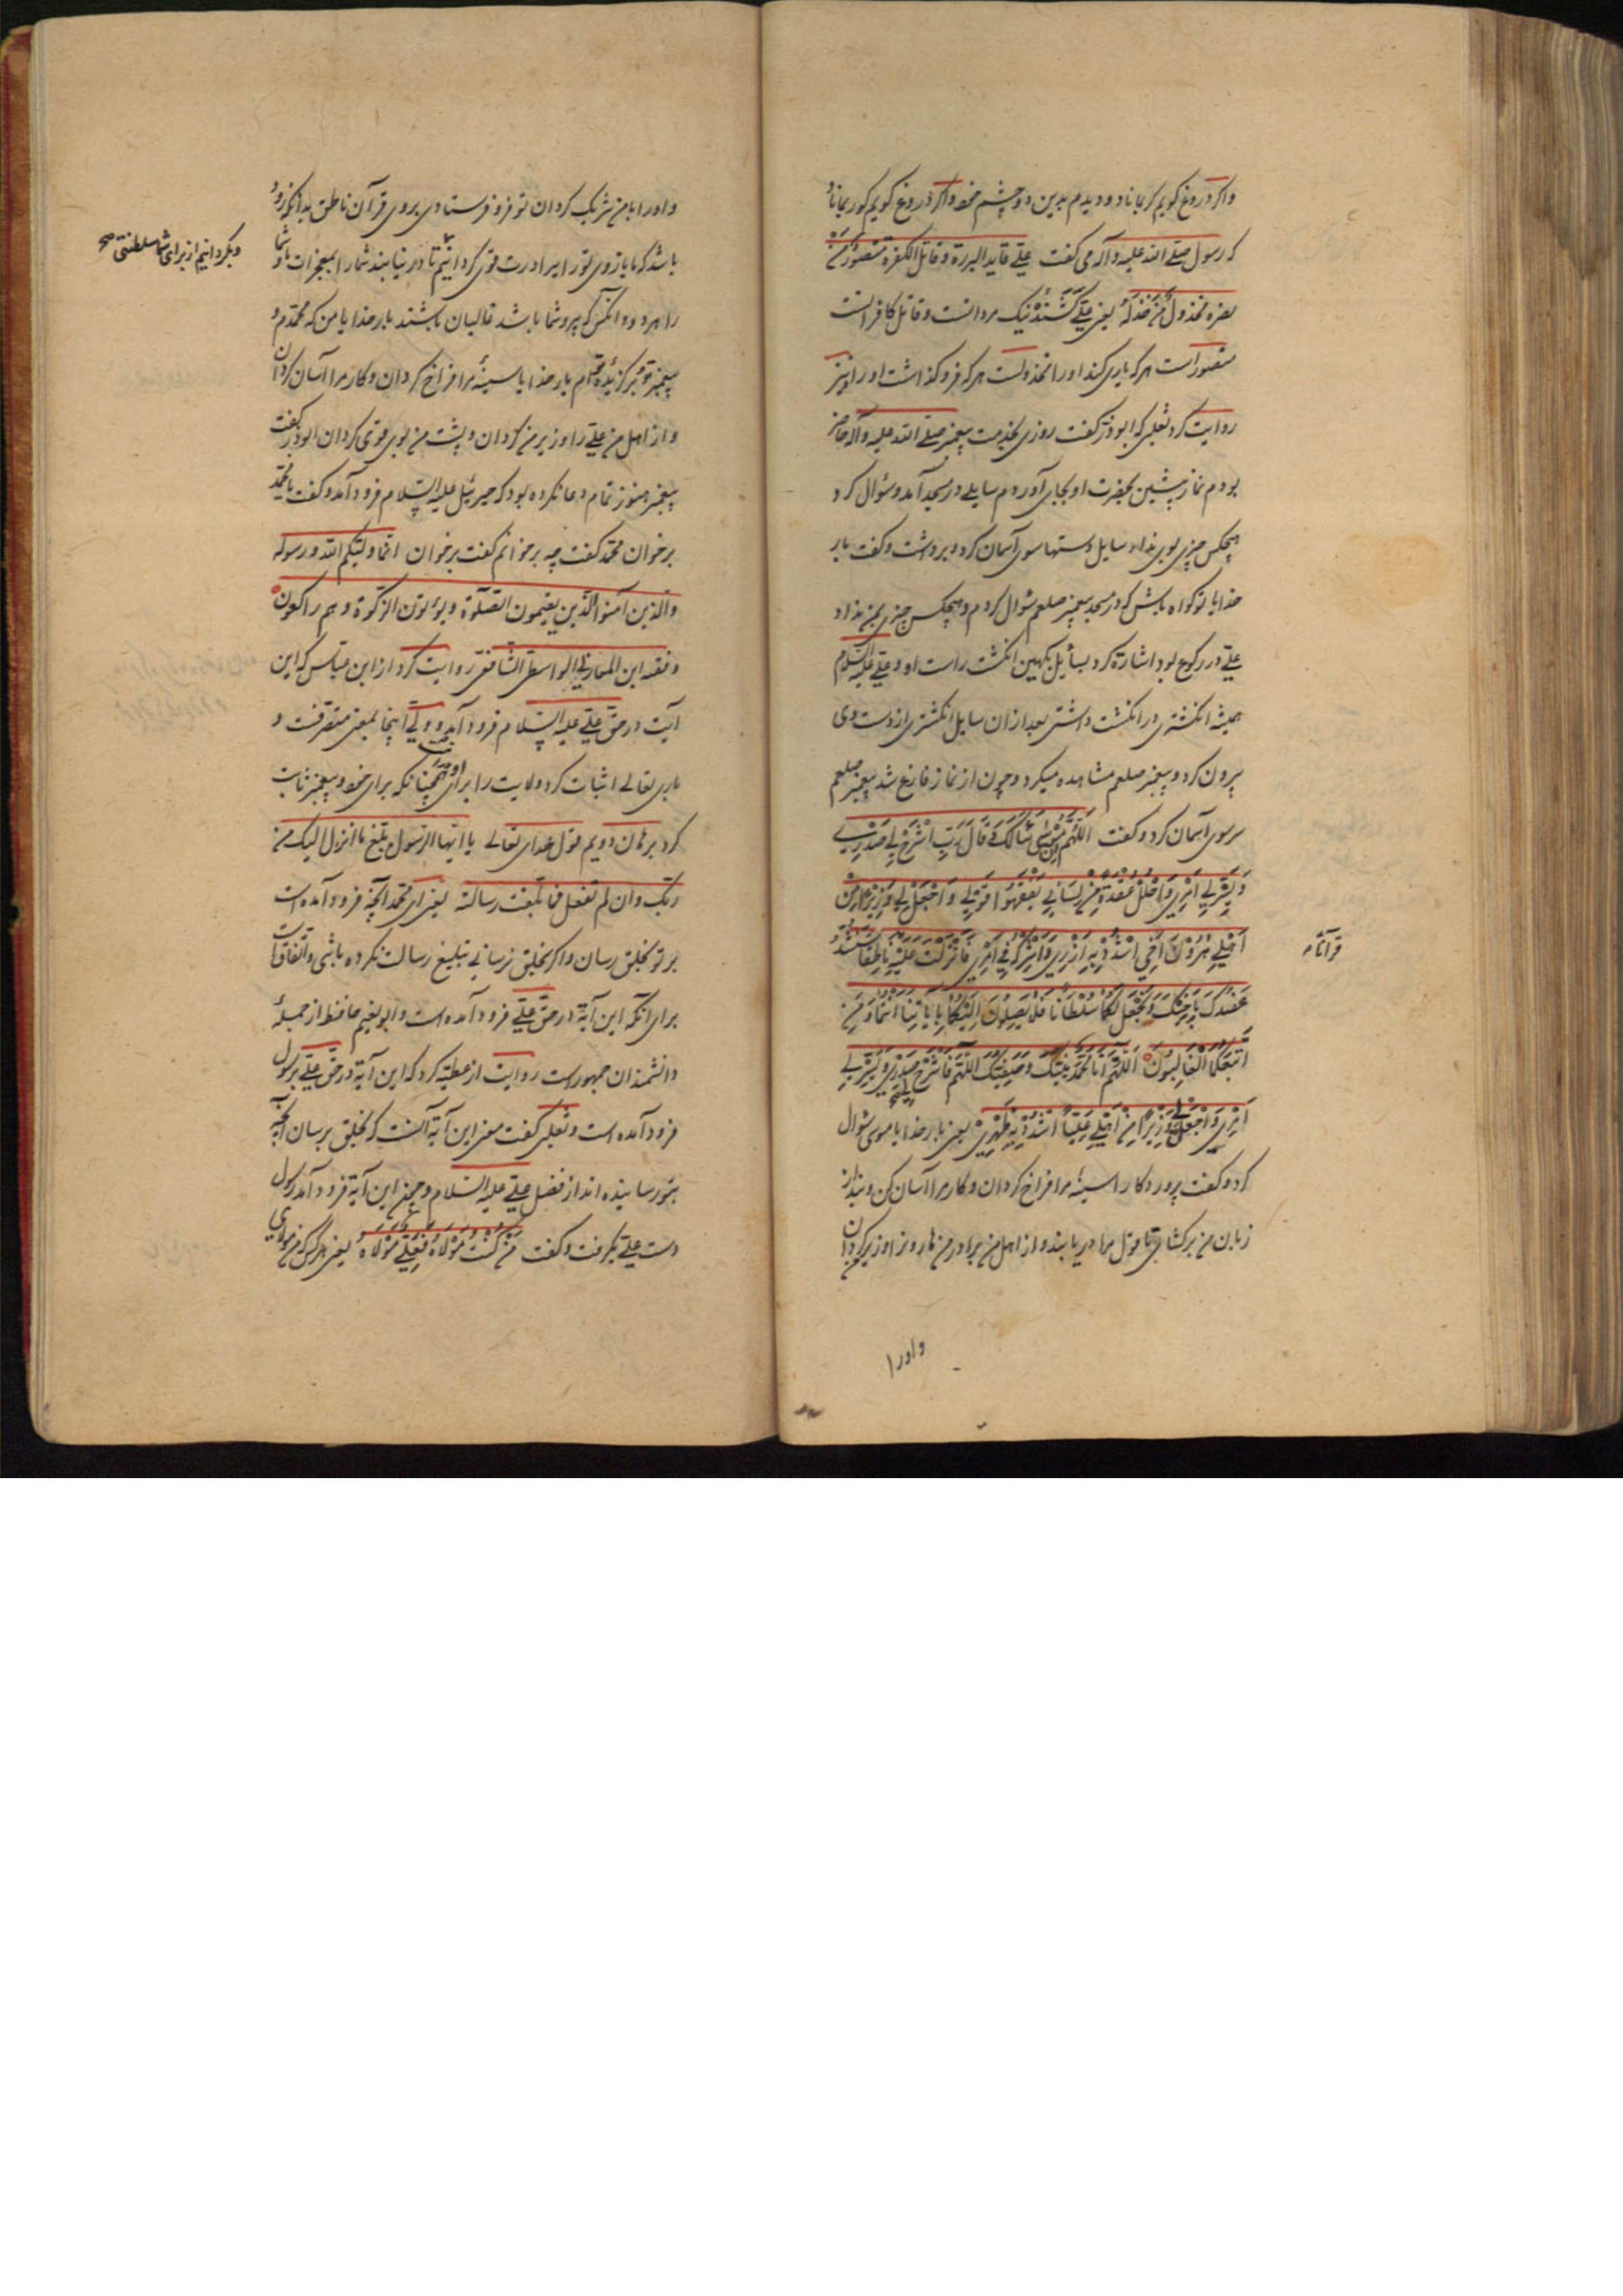 واکر دروغ کویم کر بماناد و دیدم بدین دو چشم خود واکر دروغ کویم کور بماناد
که رسول صلی الله علیه وآله می کفت علی قاید البررة وقاتل الکفرة منصور من
نصره مخذول من خذله یعنی علی کشنده نیک مردانست وقاتل کافرانست
منصور است هر که یاری کند اورا مخذولست هر که فرو کذاشت اورا ونیز
روایت کرد ثعلبی که ابوذر کفت روزی بخدمت پیغمبر صلی الله علیه وآله حاضر
بودم نماز پیشین بحضرت او بجای آوردم سایلی در مسجد آمد وسؤال کرد
هیچکس چیزی بوی نداد سایل دستها سوی آسمان کرد وبرداشت وکفت بار
خدایا تو کواه باش که در مسجد پیغمبر صلعم سؤال کردم وهیچکس چیزی بمن نداد
علی در رکوع بود اشارة کرد بسایل بکهین انکشت راست او وعلی علیه السلام
همیشه انکشتری در انکشت داشتی بعد ازان سایل انکشتری از دست وی
بیرون کرد وپیغمبر صلعم مشاهده میکرد وچون از نماز فارغ شد پیغمبر صلعم
سر سوی آسمان کرد وکفت اَللّهُمَّ اِنَّ مُوْسٰی سَأَلَکَ فَقَالَ رَبِّ اشْرَحْ لِی صَدْرِی
وَیَسِّرْ لِی اَمْرِی وَاحْلُلْ عُقْدَةً مِنْ لِسَانِی یَفْقَهُوا قَوْلِی وَاجْعَلْ لِی وَزِیْرًا مِنْ
اَهْلِی هٰرُوْنَ اَخِی اشْدُدْ بِهِ اَزْرِی وَاَشْرِکْهُ فِی اَمْرِی فَاَنْزَلْتَ عَلَیْهِ نَاطِقًا سَنَشُدُّ
قرآنا
عَضُدَکَ بِاَخِیْکَ وَنَجْعَلُ لَکُمَا سُلْطَانًا فَلَا یَصِلُوْنَ اِلَیْکُمَا بِاٰیَاتِنَا اَنْتُمَا وَمَنِ
اتَّبَعَکُمَا الْغَالِبُوْنَ اَللّهُمَّ اَنَا مُحَمَّدٌ نَبِیُّکَ وَصَفِیُّکَ اَللّهُمَّ فَاشْرَحْ لِی صَدْرِی وَیَسِّرْ لِی
اَمْرِی وَاجْعَلْ لِی وَزِیْرًا مِنْ اَهْلِی عَلِیًّا اشْدُدْ بِهِ ظَهْرِی یعنی بار خدایا موسی سؤال
کرد وکفت پروردکارا سینۀ مرا فراخ کردان وکار مرا آسان کن وبند از
زبان من برکشای تا قول مرا دریابند واز اهل من برادر من هارونرا وزیر من کردان
واورا
واورا با من شریک کردان تو فرو فرستادی بروی قرآن ناطق بدانکه زود
باشد که ما بازوی تورا ببرادرت قوی کردانیم تا در نیابند شمارا بمعجزات ما وشما
وبکردانیم از برای شما سلطنتی صح
را هر دو وانکس که پیرو شما باشد غالبان باشند بار خدایا من که محمدم و
پیغمبر تو وبرکزیدۀ توام بار خدایا سینۀ مرا فراخ کردان وکار مرا آسان کردان
واز اهل من علی را وزیر من کردان وپشت من بوی قوی کردان ابوذر کفت
پیغمبر هنوز تمام دعا نکرده بود که جبرئیل علیه السلام فرود آمد وکفت یا محمد
برخوان محمد کفت چه برخوانم کفت برخوان انما ولیکم الله ورسوله
والذین آمنوا الذین یقیمون الصلوة ویؤتون الزکوة وهم راکعون
وفقیه ابن المغازلی الواسطی الشافعی روایت کرد از ابن عباس که این
آیت در حق علی علیه السلام فرود آمد وولی آنجا بمعنی متصرفست و
باری تعالی اثبات کرد ولایت را برای او همچنانکه برای خود وپیغمبر ثابت
کرد برهان دویم قول خدای تعالی یا ایها الرسول بلغ ما انزل الیک من
ربک وان لم تفعل فما بلغت رسالته یعنی ای محمد آنچه فرود آمده است
بر تو بخلق رسان واکر بخلق نرسانی تبلیغ رسالت نکرده باشی واتفاقست
برای آنکه این آیة در حق علی فرود آمده است وابو نعیم حافظ از جملۀ
دانشمندان جمهورست روایت از عطیه کرد که این آیة در حق علی برسول
فرود آمده است وثعلبی کفت معنی این آیة آنست که بخلق برسان آنچه
بتو رسانیده اند از فضل علی علیه السلام وچون این آیة فرود آمد رسول
دست علی بکرفت وکفت مَنْ کُنْتُ مَوْلَاهُ فَعَلِیٌّ مَوْلَاهُ یعنی هر کس که من مولای